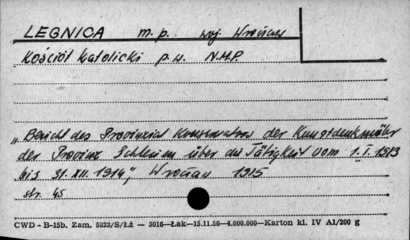 LEGNICA m.p. woj. Wrocław
Kościół katolicki p.w. N.M.P.
„Bericht des Provinzial Konservators der Kunstdenkmäler
der Provinz Schlesien über die Tätigkeit vom 1.I.1913
bis 31.XII.1914", Wrocław 1915
str. 45
CWD - B-15b. Zam. 5823/S/Łż — 3016—Łak—15.11.56—4.000.000—Karton kl. IV A1/200 g